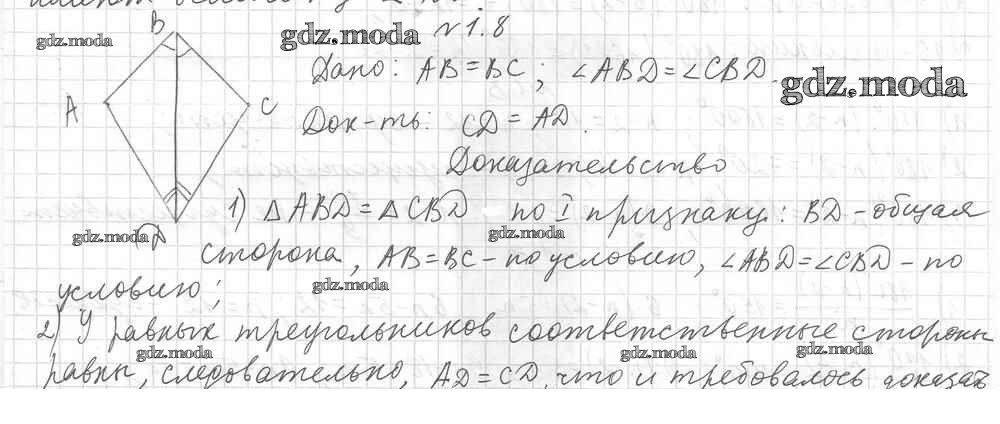 B
gdz.moda
gdz.moda
№1.8
Дано: AB=BC; ∠ABD=∠CBD
gdz.moda
A
C
Док-ть: CD=AD.
Доказательство
1) △ABD=△CBD по I признаку: BD-общая
gdz.moda
D
gdz.moda
сторона, AB=BC-по условию, ∠ABD=∠CBD-по
gdz.moda
условию;
2) У равных треугольников соответственные стороны
gdz.moda
gdz.moda
gdz.moda
равны, следовательно, AD=CD, что и требовалось доказать